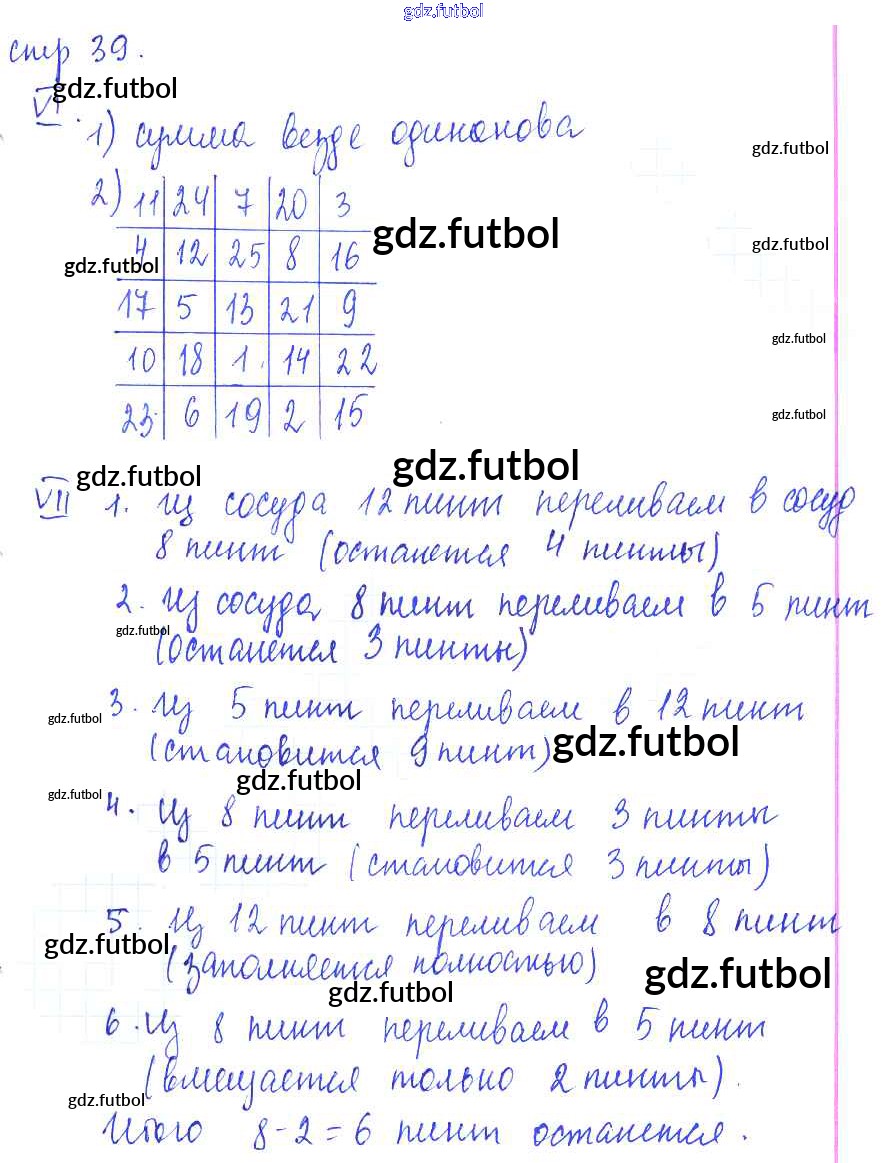 gdz.futbol
стр 39.
gdz.futbol
VI.
1) сумма везде одинакова
gdz.futbol
2) 11 24 7 20 3
gdz.futbol
gdz.futbol
4 12 25 8 16
gdz.futbol
17 5 13 21 9
gdz.futbol
10 18 1 14 22
23 6 19 2 15
gdz.futbol
gdz.futbol
gdz.futbol
VII 1. Из сосуда 12 пинт переливаем в сосуд
8 пинт (останется 4 пинты)
2. Из сосуда 8 пинт переливаем в 5 пинт
gdz.futbol
(останется 3 пинты)
3. Из 5 пинт переливаем в 12 пинт
gdz.futbol
(становится 9 пинт)
gdz.futbol
gdz.futbol
gdz.futbol
4. Из 8 пинт переливаем 3 пинты
в 5 пинт (становится 3 пинты)
5. Из 12 пинт переливаем в 8 пинт
gdz.futbol
(заполняется полностью)
gdz.futbol
gdz.futbol
6. Из 8 пинт переливаем в 5 пинт
(вмещается только 2 пинты).
gdz.futbol
Итого 8-2=6 пинт останется.